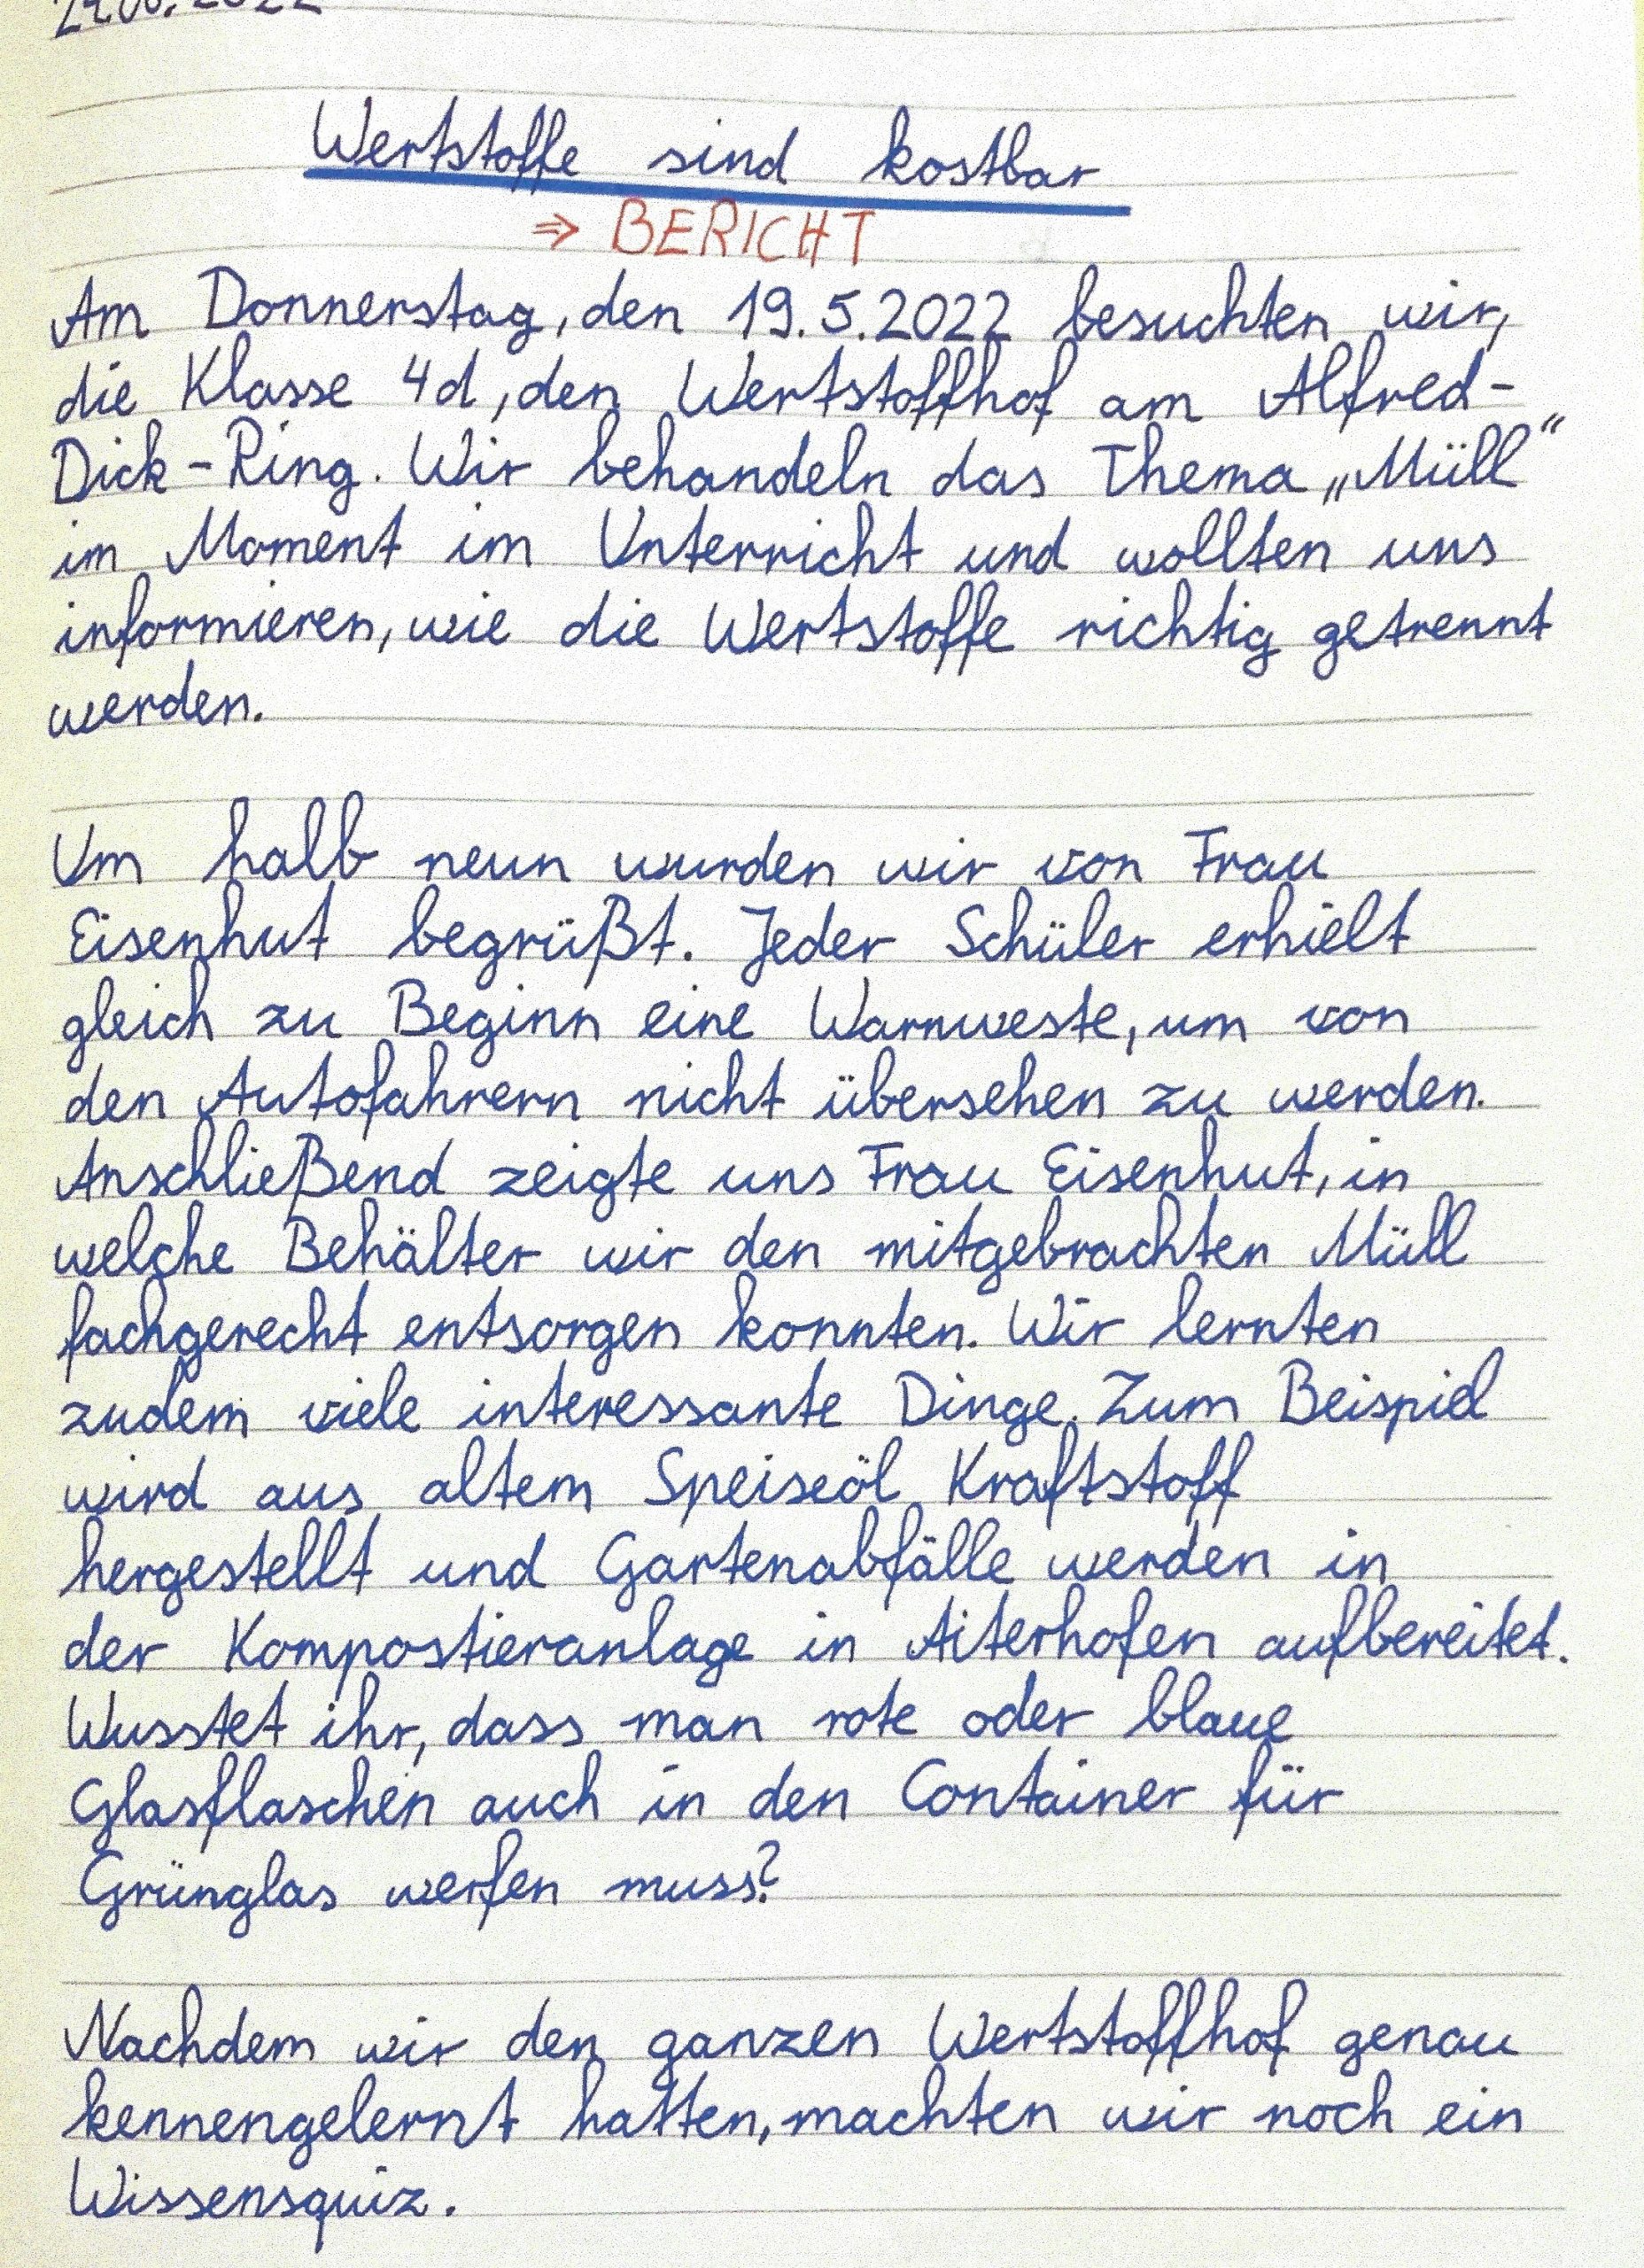 Wertstoffe sind kostbar
⇒ BERICHT
Am Donnerstag, den 19.5.2022 besuchten wir,
die Klasse 4d, den Wertstoffhof am Alfred-
Dick-Ring. Wir behandeln das Thema „Müll“
im Moment im Unterricht und wollten uns
informieren, wie die Wertstoffe richtig getrennt
werden.
Um halb neun wurden wir von Frau
Eisenhut begrüßt. Jeder Schüler erhielt
gleich zu Beginn eine Warnweste, um von
den Autofahrern nicht übersehen zu werden.
Anschließend zeigte uns Frau Eisenhut, in
welche Behälter wir den mitgebrachten Müll
fachgerecht entsorgen konnten. Wir lernten
zudem viele interessante Dinge. Zum Beispiel
wird aus altem Speiseöl Kraftstoff
hergestellt und Gartenabfälle werden in
der Kompostieranlage in Aiterhofen aufbereitet.
Wusstet ihr, dass man rote oder blaue
Glasflaschen auch in den Container für
Grünglas werfen muss?
Nachdem wir den ganzen Wertstoffhof genau
kennengelernt hatten, machten wir noch ein
Wissensquiz.